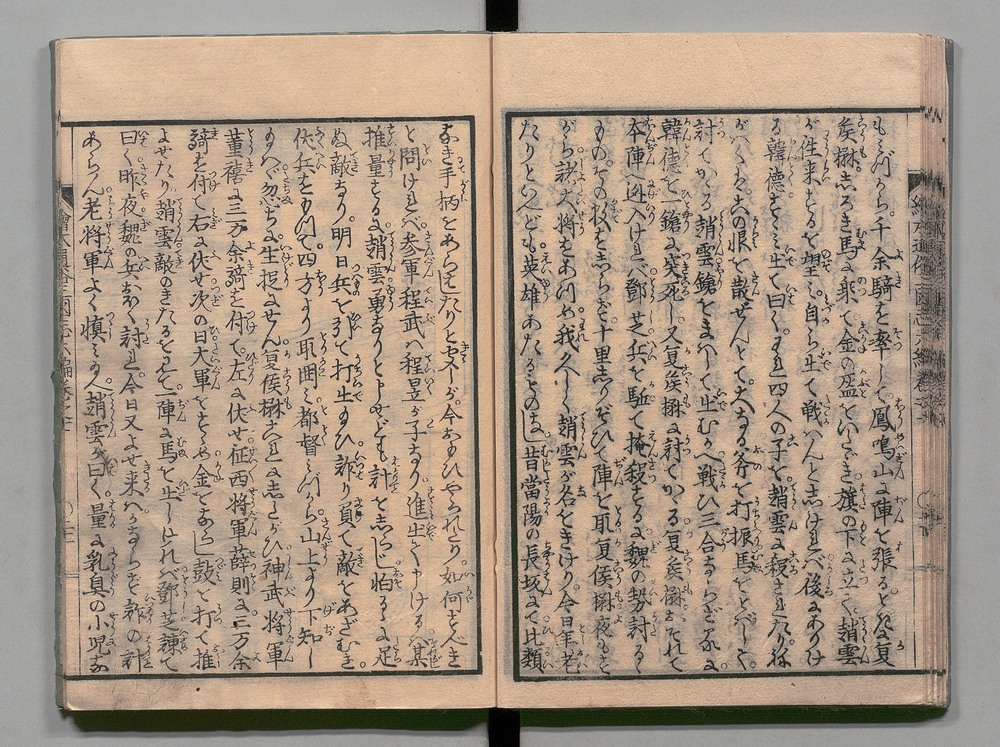 もみづから千余騎を率して鳳鳴山に陣を張るとき夏
矦楙しろき馬に乗て金の盔をいたゞき旗の下に立て趙雲
が往来するを望み自ら出て戦はんとしければ後にありけ
る韓德すゝみ出て曰くわれ四人の子を趙雲に殺されたり
がいで其恨を散ぜんとて大なる斧を打振馬をとばして
討てかゝる趙雲鎗をまはして出むかへ戦ひ三合ならざるに
韓德を一鎗に突死し又夏矦楙に討てかゝる夏矦楙おそれて
本陣に迯入ければ鄧芝兵を駈て掩殺する魏の勢討るゝ
ものその数をしらず十里しりぞひて陣を取夏侯楙夜もと
がら諸大将をあつめ我久しく趙雲が名をきけり今日年老
たりといへども英雄あたるものなし昔當陽の長坂にて比類
なき手柄をあらはしたりと聞しが今おもひやられたり如何すべき
と問ければ参軍程武は程昱が子なり進出て申けるは某
推量するに趙雲勇ありといへども計をしらず怕るゝに足
ぬ敵なり明日兵を引て打出給ひ詐り負て敵をあざむき
伏兵をもつて四方より取囲み都督みづから山上より下知し
給へ忽ちに生捉ません夏侯楙これにしたがひ神武将軍
董禧に三万余騎を付て左に伏せ征西将軍薛則に三万余
騎を付て右に伏せ次の日大軍をすゝめ金をならし鼓を打て推
よせたり趙雲敵のきたるを見て一陣に馬を出しければ鄧芝諫て
曰く昨夜魏の兵おほく討れ今日又よせ来るはかならず詐の計
あらん老将軍よく慎み給へ趙雲が曰く量に乳臭の小児な